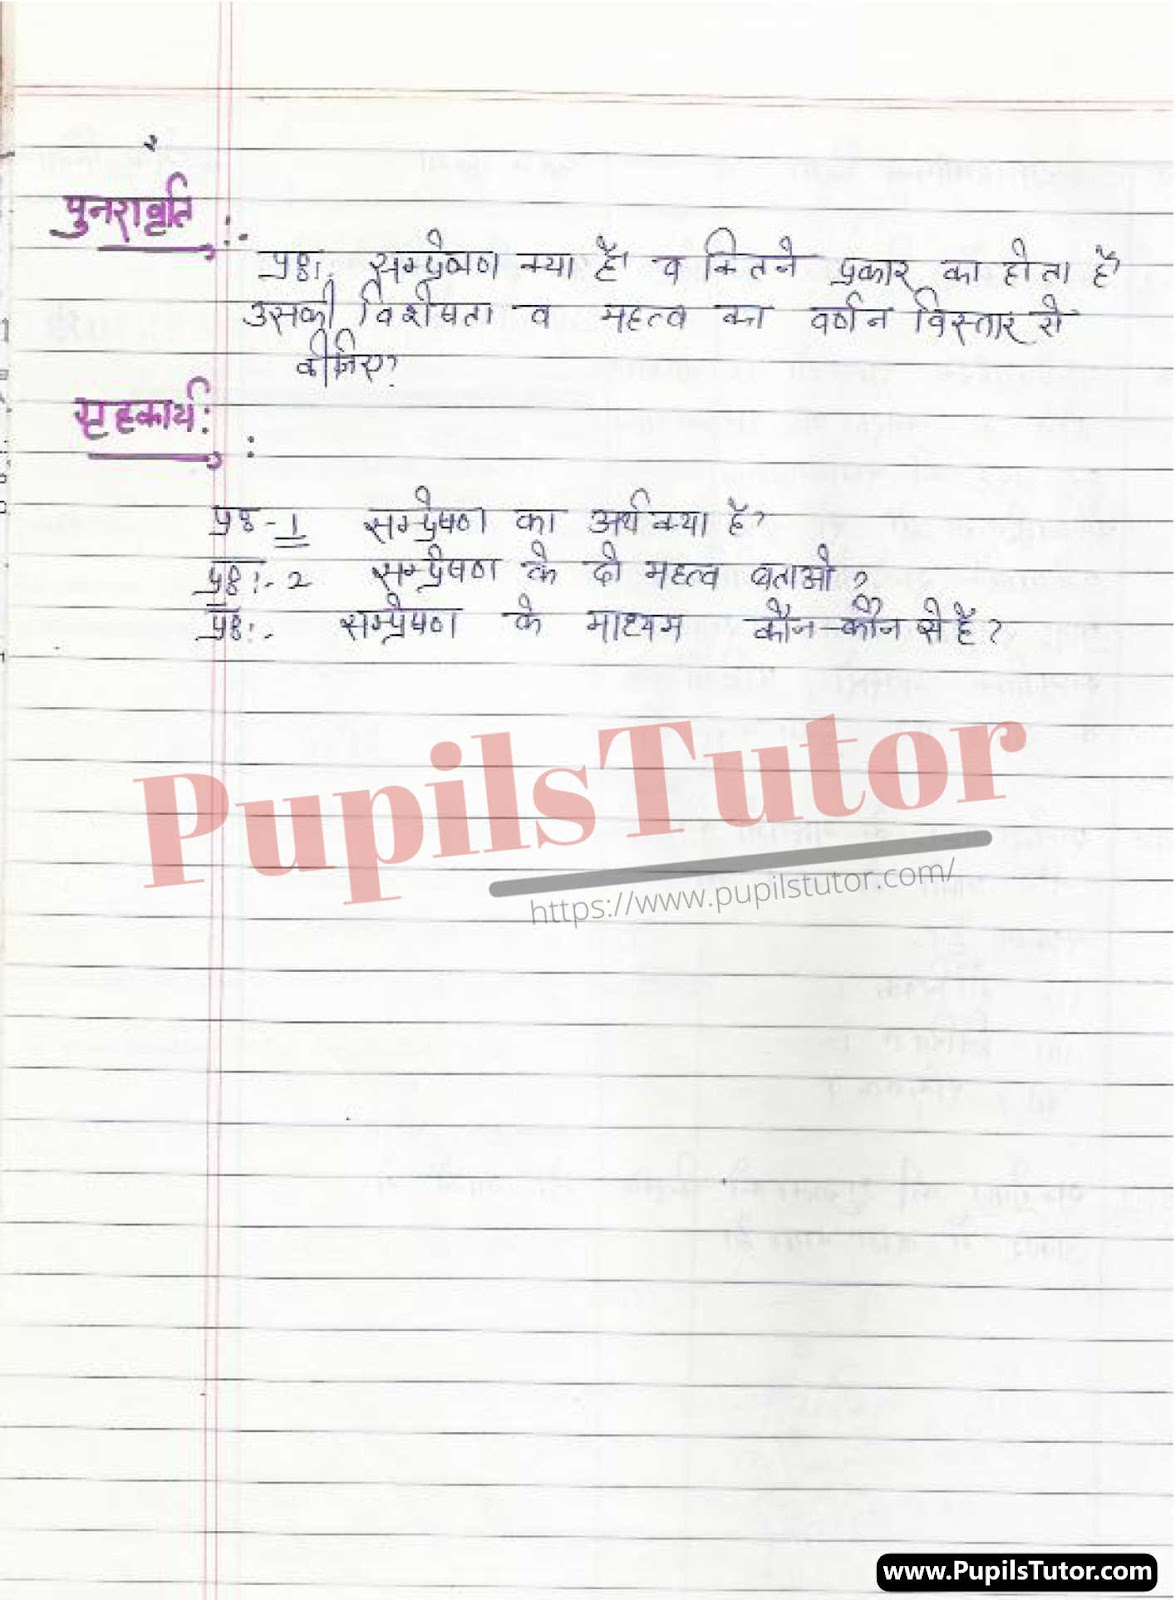 पुनरावृति :
प्रश्न:. सम्प्रेषण क्या है। व कितने प्रकार का होता है
उसकी विशेषता व महत्व का वर्णन विस्तार से
कीजिए?
गृहकार्य: :
प्रश्न - 1 सम्प्रेषण का अर्थ क्या है?
प्रश्न:- 2 सम्प्रेषण के दो महत्व बताओ?
प्रश्न:- सम्प्रेषण के माध्यम कौन-कौन से है?
PupilsTutor
https://www.pupilstutor.com/
www.PupilsTutor.com